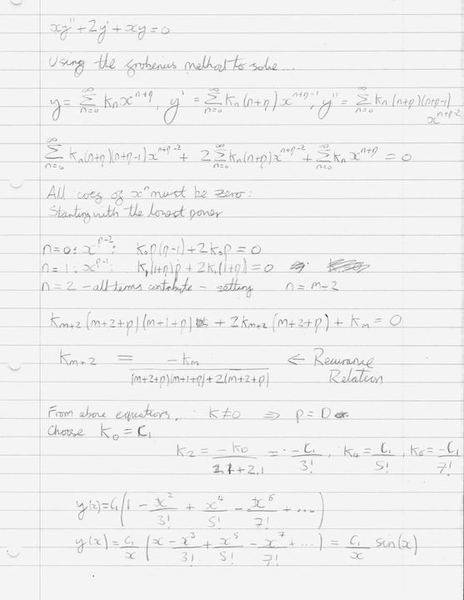 xy'' + 2y' + xy = 0
Using the frobenius method to solve...
y = ∞Σn=0 kₙ xⁿ⁺ᵖ, y' = ∞Σn=0 kₙ(n+p) xⁿ⁺ᵖ⁻¹, y'' = ∞Σn=0 kₙ(n+p)(n+p-1) xⁿ⁺ᵖ⁻²
∞Σn=0 kₙ(n+p)(n+p-1)xⁿ⁺ᵖ⁻² + 2 ∞Σn=0 kₙ(n+p)xⁿ⁺ᵖ⁻² + ∞Σn=0 kₙ xⁿ⁺ᵖ = 0
All coes of xⁿ must be zero:
Starting with the lowest power
n=0: xᵖ⁻²: k₀p(p-1)+2k₀p = 0
n=1: xᵖ⁻¹: k₁(1+p)p + 2k₁(1+p) = 0
n=2 - all terms contribute - setting n=m-2
kₘ₊₂(m+2+p)(m+1+p) + 2kₘ₊₂(m+2+p) + kₘ = 0
kₘ₊₂ = -kₘ / (m+2+p)(m+1+p)+2(m+2+p) ← Recurrance
Relation
From above equations, k≠0 ⇒ p=0 or
Choose k₀ = C₁
k₂ = -k₀ / 2.1+2.1 = -C₁/3!, k₄ = C₁/5!, k₆ = -C₁/7!
y(x) = C₁(1 - x²/3! + x⁴/5! - x⁶/7! + ...)
y(x) = C₁/x (x - x³/3! + x⁵/5! - x⁷/7! + ...) = C₁/x sin(x)